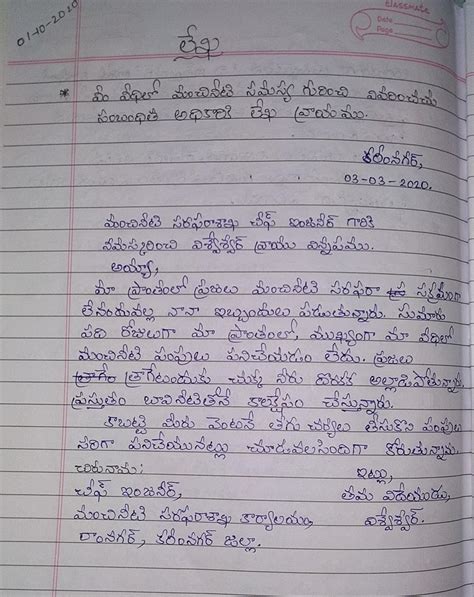 01-10-2020
classmate
Date
Page
లేఖ
* మీ వీధిలో మంచినీటి సమస్య గురించి వివరించుచు
సంబంధిత అధికారికి లేఖ వ్రాయుము.
కరీంనగర్,
03-03-2020.
మంచినీటి సరఫరాశాఖ చీఫ్ ఇంజనీర్ గారికి
నమస్కరించి విశ్వేశ్వర్ వ్రాయు విన్నపము.
అయ్యా,
మా ప్రాంతంలో ప్రజలు మంచినీటి సరఫరా సక్రమంగా
లేనందువల్ల నానా ఇబ్బందులు పడుతున్నారు. సుమారు
పది రోజులుగా మా ప్రాంతంలో, ముఖ్యంగా మా వీధిలో
మంచినీటి పంపులు పనిచేయడం లేదు. ప్రజలు
త్రాగేం త్రాగేటందుకు చుక్క నీరు దొరకక అల్లాడిపోతున్నారు.
ప్రస్తుతం బావినీటితోనే కాలక్షేపం చేస్తున్నారు.
కాబట్టి మీరు వెంటనే తగు చర్యలు తీసుకొని పంపులు
సరిగా పనిచేయునట్లు చూడవలసిందిగా కోరుతున్నాను.
చిరునామా:
ఇట్లు,
చీఫ్ ఇంజనీర్,
తమ విధేయుడు,
మంచినీటి సరఫరాశాఖ కార్యాలయం,
విశ్వేశ్వర్.
రాంనగర్, కరీంనగర్ జిల్లా.